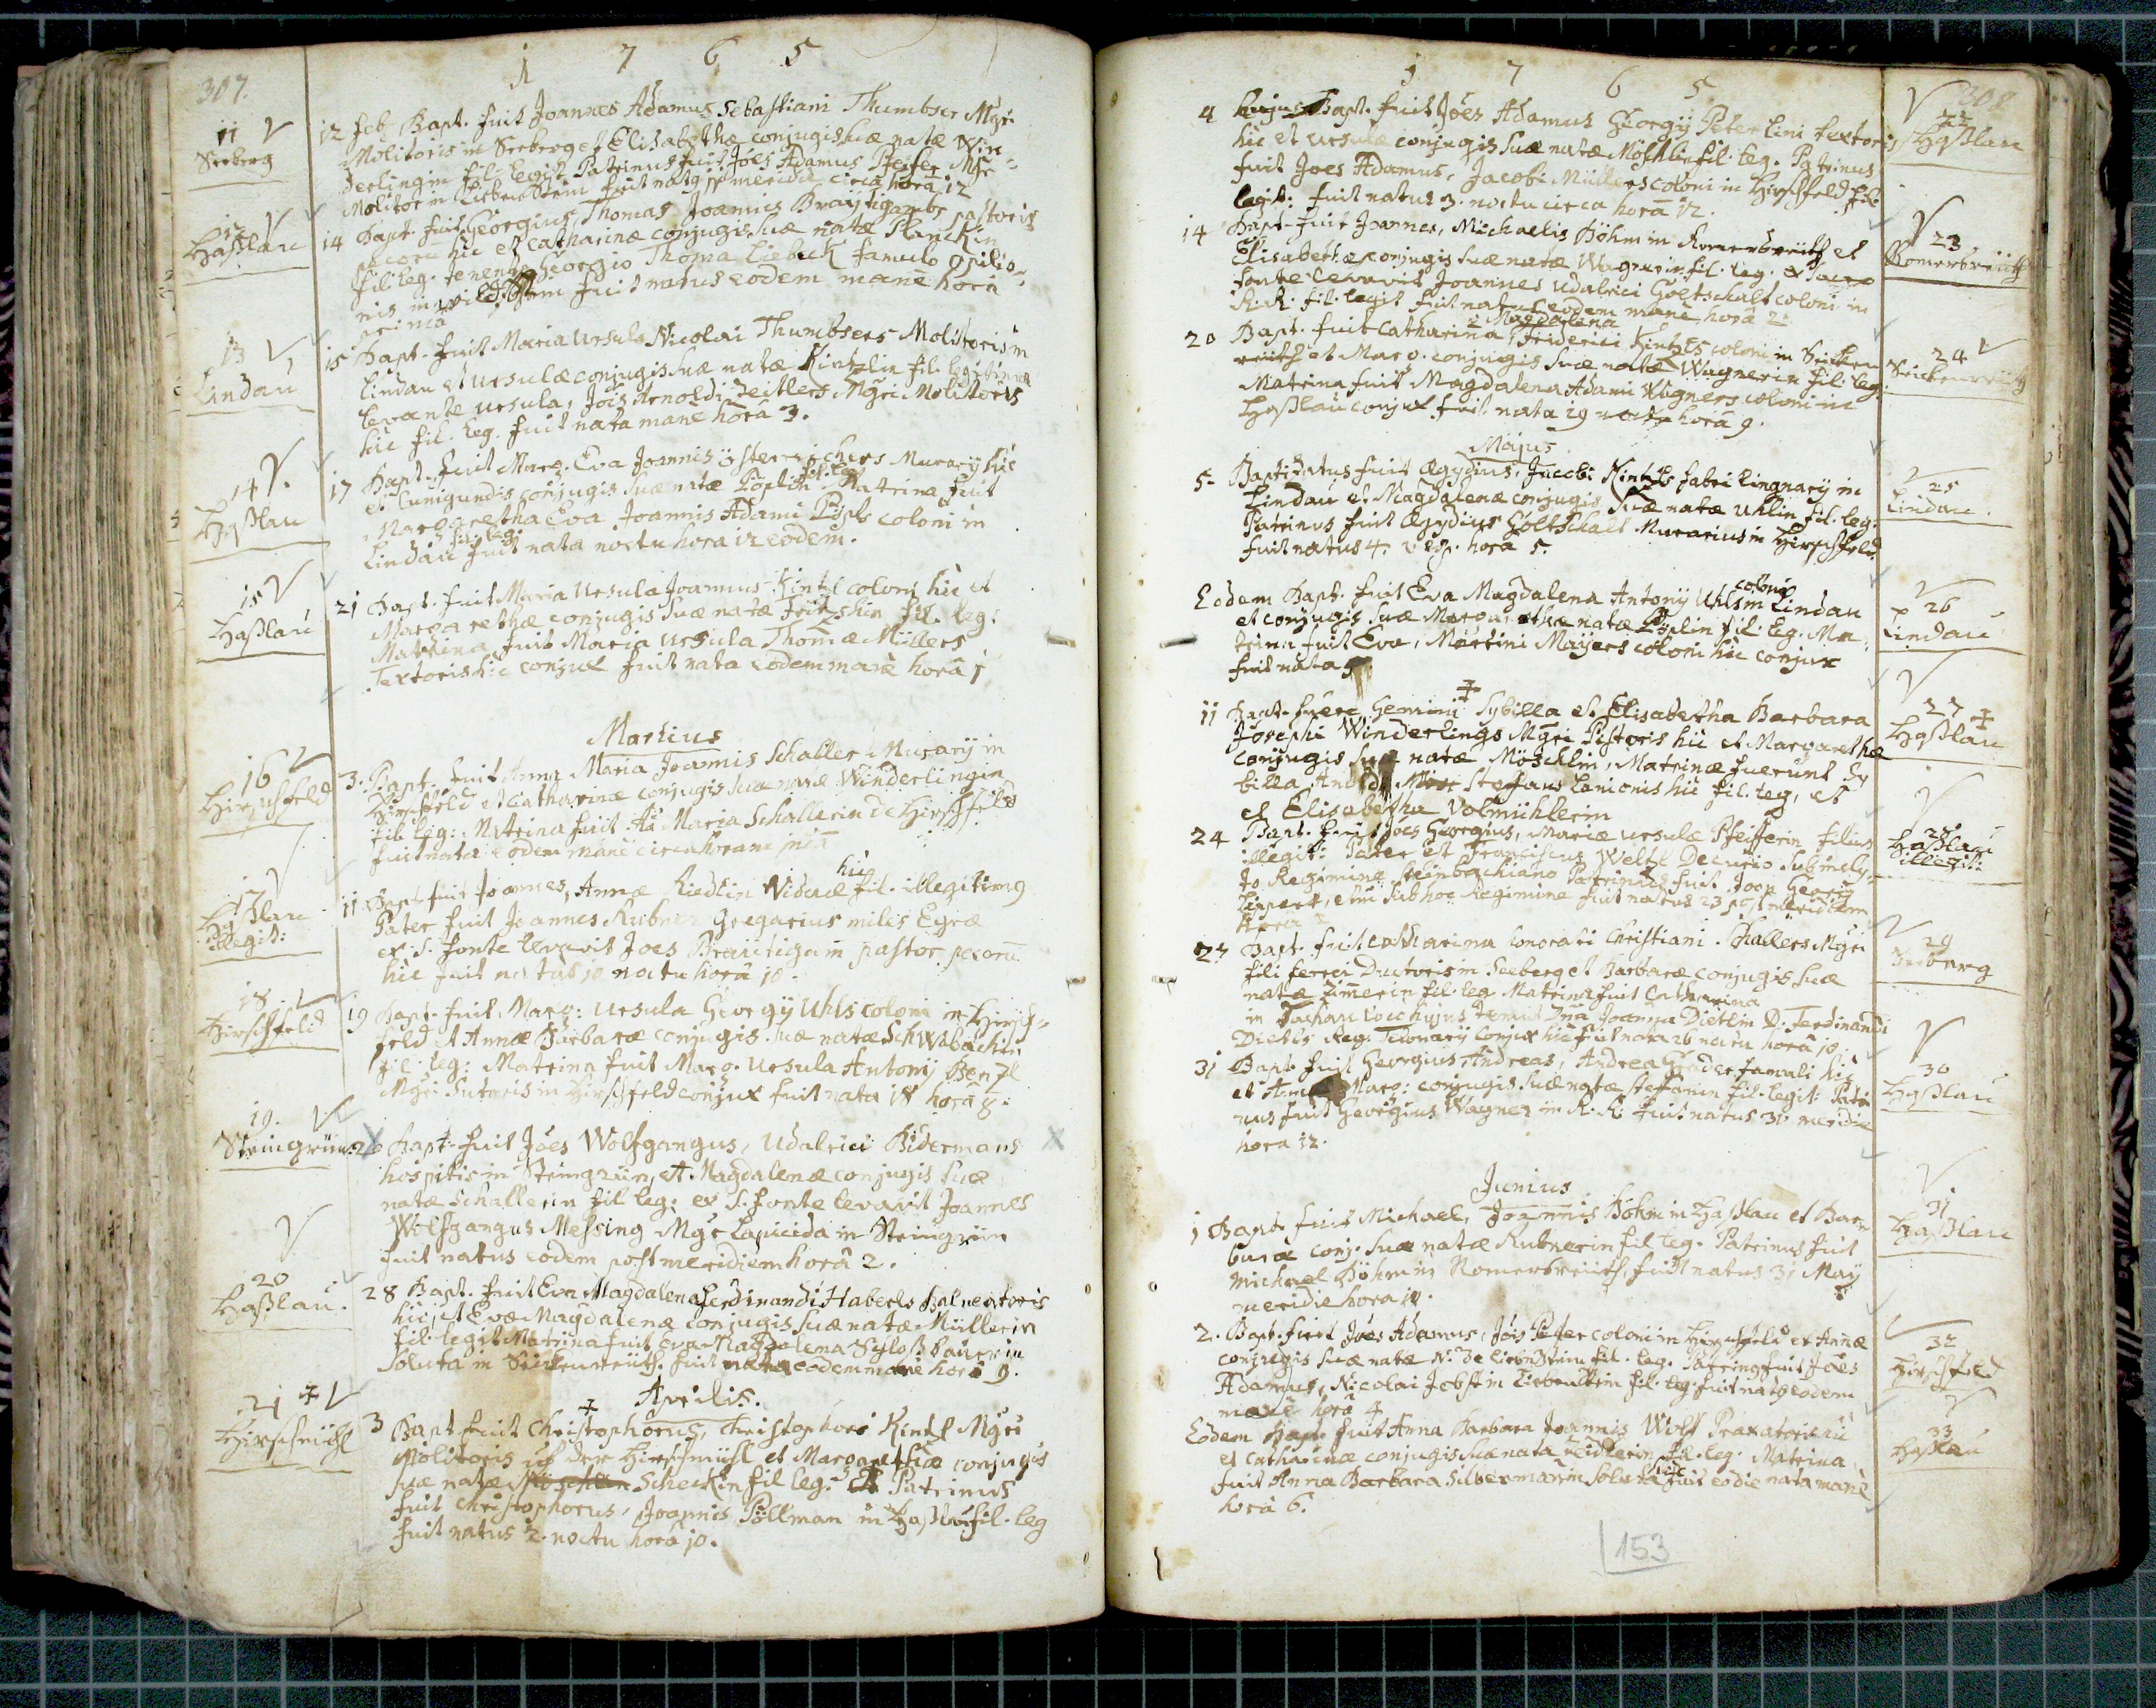 307.
1 7 6 5
11
Seeberg
12 feb. Bapt. fuit Joannes Adamus Sebastiani Thumbser Mgri
Molitoris in Seeberg et Elisabethæ conjugis suæ natæ Win-
derlingin fil. legit. Patrinus fuit Jões Adamus Pfeifer Mgr
Molitor in Liebenstein fuit natg meridie circa hora 12
12
Haßlau
14 Bapt. fuit Georgius Thomas Joannis Bräutigambs pastoris
pecoru hic et Catharinæ conjugis suæ natæ Planckin
fil. leg. tenente Georgio Thoma Liebeck famulo opilio-
nis in Wildstein fuit natus eodem mane hora
prima
13
Lindau
15 Bapt. fuit Maria Ursula Nicolai Thumbsers Molitoris in
Lindau et Ursulæ conjugis suæ natæ Kintzlin fil. legitima
levante Ursula, Jois Arnoldi Zeitlers Mgri Molitoris
hic fil. leg. fuit nata mane hora 3.
14
Haßlau
17 Bapt. fuit Marg. Eva Joannis Österreichers Murarij hic
et Cunigundis conjugis suæ natæ Pöplin fil. leg. Matrina fuit
Margaretha Eva Joannis Adami Pöpls coloni in
Lindau fil. leg. fuit nata noctu hora 12 eodem.
15
Haßlau
21 Bapt. fuit Maria Ursula Joannis Kintzl coloni hic et
Margarethæ conjugis suæ natæ Fritzshin fil. leg:
Matrina fuit Maria Ursula Thomæ Müllers
Textoris hic conjux fuit nata eodem mane hora 1
Martius
16
Hirschfeld
3. Bapt. fuit Anna Maria Joannis Schaller Murarij in
Hirschfeld et Catharinæ conjugis suæ natæ Winderlingin
fil. leg: Matrina fuit Aa Maria Schallerin de Hirschfeld
fuit nata eodem mane circa horam
17
Haßlau
illegit:
11 Bapt. fuit Joannes, Annæ Riedlin Viduæ hic fil. illegitimg
Pater fuit Joannes Rubner Gregarius miles Egræ
ex S. fonte levavit Joes Bräutigam pastor pecorū
hic fuit natus 10 noctu hora 10.
18.
Hirschfeld
19 Bapt. fuit Marg: Ursula Georgij Uhls coloni in Hirsch-
feld et Annæ Barbaræ conjugis suæ natæ Schwabachin
fil. leg: Matrina fuit Marg. Ursula Antonij Benzl
Mgri Sutoris in Hirschfeld conjux fuit nata 18 hora 8.
19.
Steingrün
26 Bapt. fuit Jões Wolfgangus, Udalrici Bidermans
hospitis in Steingrün, et Magdalenæ conjugis suæ
natæ Schallerin fil leg: ex S. fonte levavit Joannes
Wolfgangus Messing Mgr Lapicida in Steingrün
fuit natus eodem post meridiem hora 2.
20
Haßlau.
28 Bapt. fuit Eva Magdalena Ferdinandi Haberls Balneatoris
hic, et Evæ Magdalenæ conjugis suæ natæ Müllerin
fil. legit Matrina fuit Eva Magdalena Schloßbauerin
soluta in Seichenreuth. fuit nata eodem mane hora 9.
Aprilis.
21
Hirschmühl
3 Bapt. fuit Christophorus, Christophori Kintzl Mgri
Molitoris uf der Hirschmühl et Margarethæ conjugis
suæ natæ Scheckin fil leg: Patrinus
fuit Christophorus, Joannis Pöllman in Haßlau fil. leg
fuit natus 2. noctu hora 10.
308
1 7 6 5
22
Haßlau
4 hujus Bapt. fuit Jões Adamus Georgij Peter Lini textoris
hic et Ursulæ conjugis suæ natæ Möschlin fil. leg. Patrinus
fuit Joes Adamus, Jacobi Müllers coloni in Hirschfeld fil.
legit: fuit natus 3. noctu circa hora 12.
23.
Romerbreüth
14 Bapt. fuit Joannes, Michaelis Böhm in Romerbreüth et
Elisabethæ conjugis suæ natæ Wagnerin fil. leg. ex sacro
fonte levavit Joannes Udalrici Gottschalk coloni in
R.R. fil. legit fuit natus eodem mane hora 2
24
Seichenreüth
20 Bapt. fuit Catharina Magdalena, Friderici Kintzls coloni in Seichen
reüth et Marg. conjugis suæ natæ Wagnerin fil. leg.
Matrina fuit Magdalena Adami Wagners coloni in
Haßlau conjux fuit nata 19 noctu hora 9.
Majus
25
Lindau
5. Baptizatus fuit Ægydius, Jacobi Kintzls fabri lingnarij in
Lindau et Magdalenæ conjugis suæ natæ Uhlin fil. leg.
Patrinus fuit Ægydius Gottschalk Murarius in Hirschfeld
fuit natus 4. vesp. hora 5.
26
Lindau
Eodem Bapt. fuit Eva Magdalena Antonij Uhls coloni in Lindau
et conjugis suæ Margarethæ natæ Pöplin fil. leg. Ma-
trina fuit Eva, Martini Mayers coloni hic conjux
fuit nata
27
Haßlau
11 Bapt. fuere Gemini Sybilla et Elisabetha Barbara
Josephi Winderlings Mgri Pistoris hic et Margarethæ
conjugis suæ natæ Möschlin, Matrinæ fuerunt Sy
billa, Steffans Lanionis hic fil. leg, et
et Elisabetha Volmüchlerin
28
Haßlau
illegit:
24 Bapt. fuit Joes Georgius, Mariæ Ursulæ Pfeifferin filius
illegit: Pater est Franciscus Weltz Decurio sub
to Regimine Steinbachiano Patrinus fuit Joan Georg
Lippert, etiu sub hoc Regimine fuit natus 23 post meridiem
hora
29
Seeberg
27 Bapt. fuit Catharina Honorati Christiani Schallers Mgri
fili ferrei Ductoris in Seeberg et Barbaræ conjugis suæ
natæ Zimerin fil. leg. Matrina fuit Catharina
in loco hujus tenuit Dna Joanna Dietlin D. Ferdinandi
Dietls Reg. Telonarij conjux hic fuit nata 26 noctu hora 10.
30
Haßlau
31 Bapt. fuit Georgius Andreas, Andrea Gräder famuli hic
et Marg: conjugis suæ natæ Steffanin fil. legit: Patri
nus fuit Georgius Wagner in R.R. fuit natus 30 meridie
hora 12.
Junius
31
Haßlau
1 Bapt. fuit Michael, Joannis Böhm in Haßlau et Bar-
baræ conj. suæ natæ Rubnerin fil leg. Patrinus fuit
Michael Böhm in Romerbreüth, fuit natus 31 May
meridie hora 11.
32
Hirschfeld
2. Bapt. fuit Jões Adamus, Jois Peter coloni in Hirschfeld et Annæ
conjugis suæ natæ N. de Liebnstein fil. leg. Patring fuit Joës
Adamus, Nicolai Jobst in Liebenstein fil. leg. fuit natg eodem
mane hora 4
33
Haßlau
Eodem Bapt. fuit Anna Barbara Joannis Wolf Praxatoris hic
et Catharinæ conjugis suæ nata Zeidlerin fil. leg. Matrina
fuit Anna Barbara Silbermanin soluta hic fuit eodie nata mane
hora 6.
153